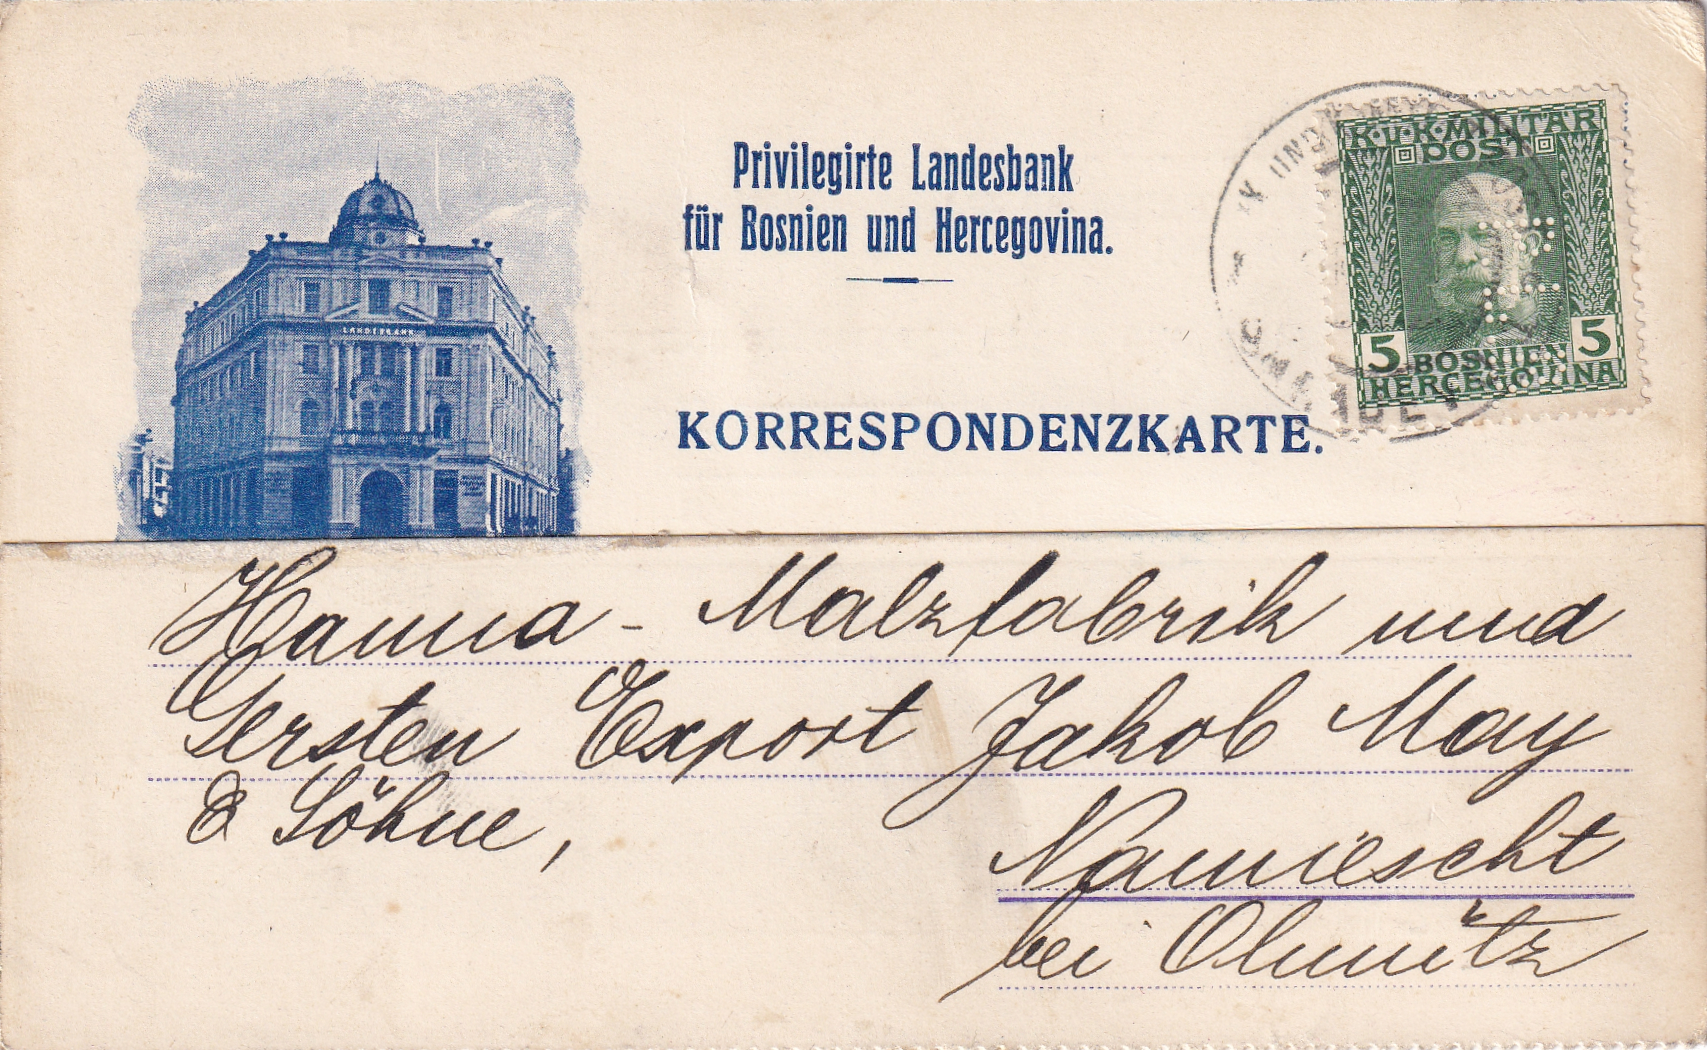 Privilegirte Landesbank
für Bosnien und Hercegovina.
LANDESBANK
KORRESPONDENZKARTE.
K.U.K. MILITÄR
POST
5 BOSNIEN 5
HERCEGOVINA
Hanna-Malzfabrik und
Gersten Export Jakob May
& Söhne,
Namiescht
bei Olmütz